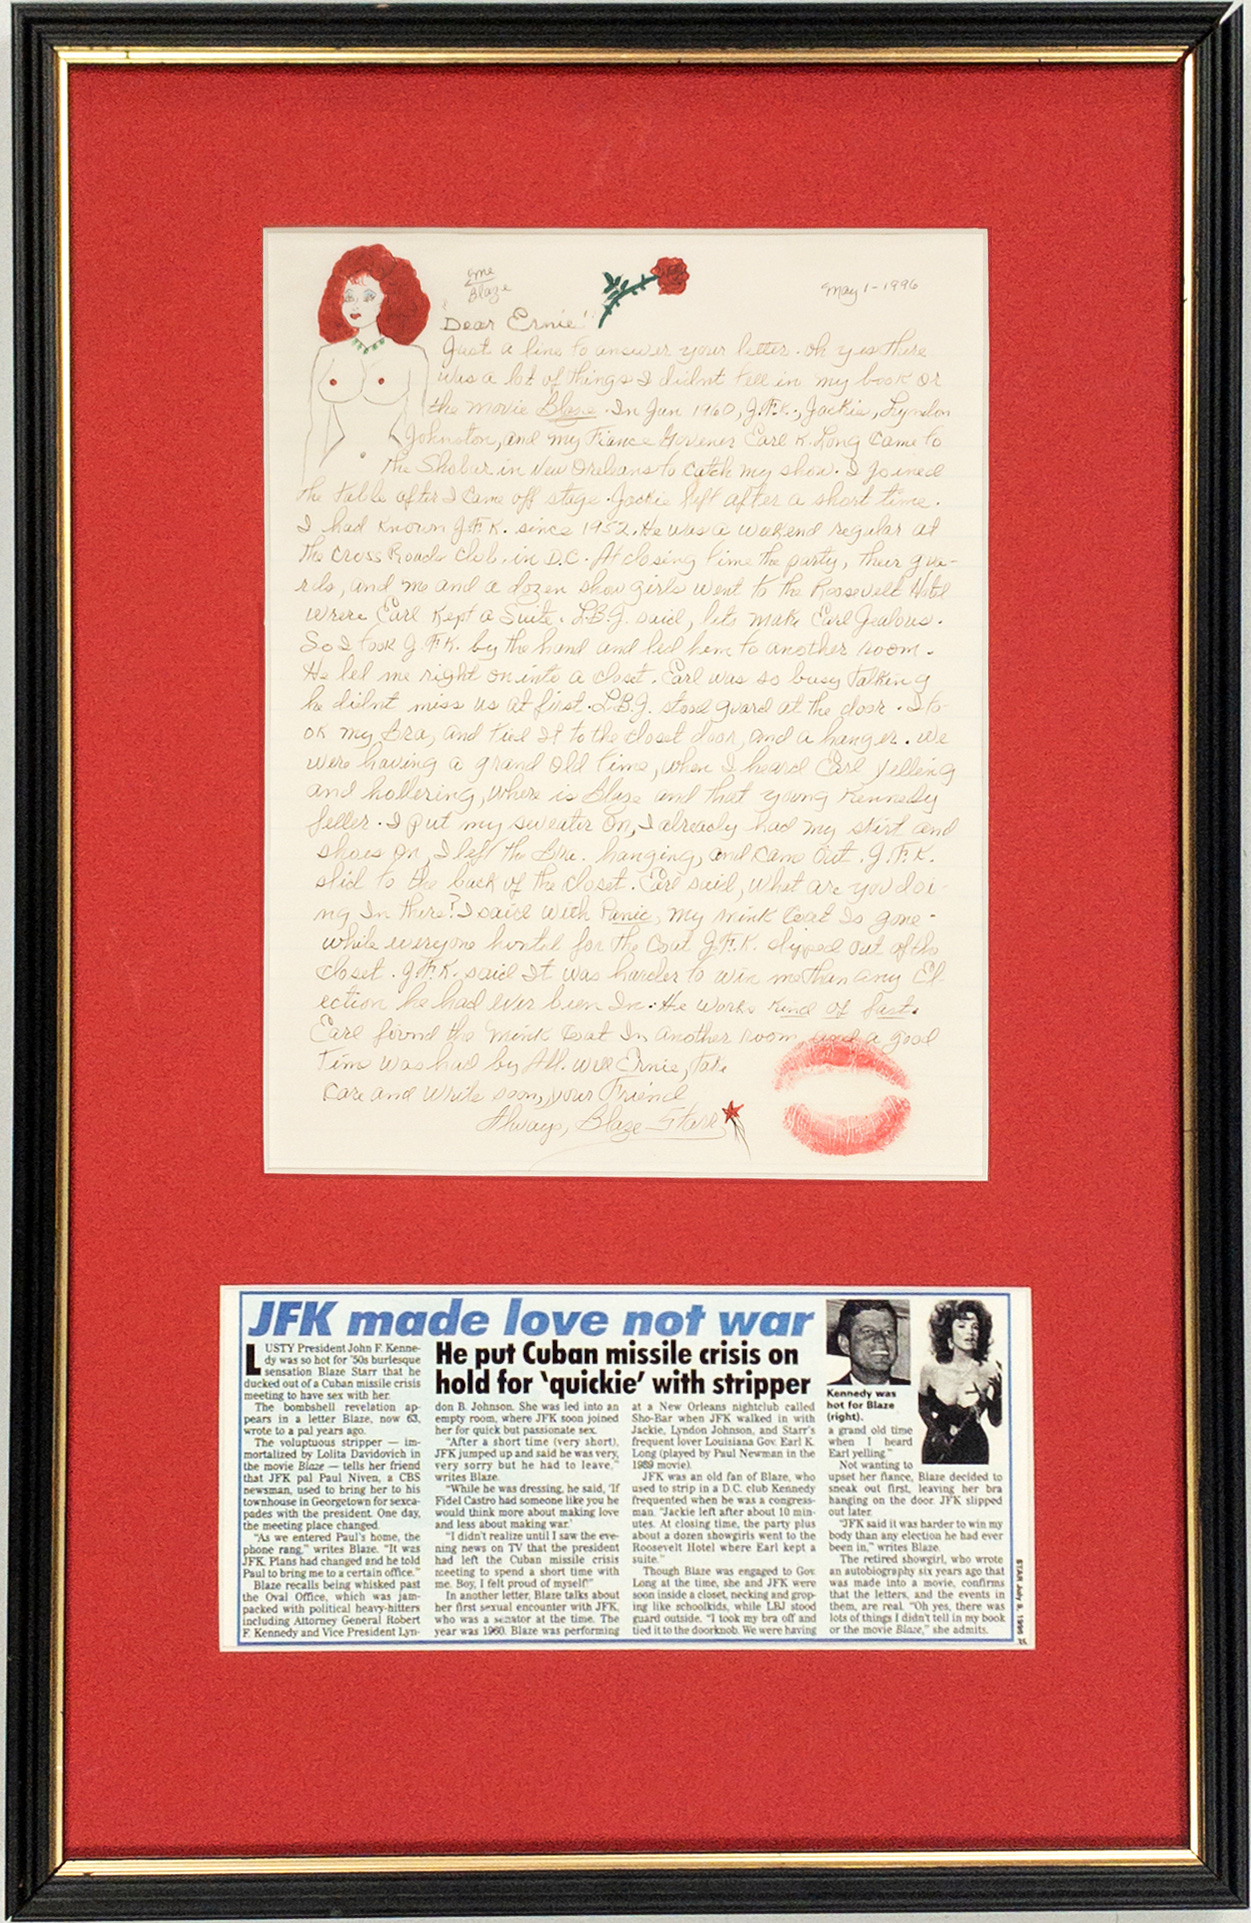 me
Blaze
May 1-1996
"Dear Ernie"
Just a line to answer your letter. Oh yes there
was a lot of things I didnt tell in my book or
the movie Blaze. In Jun 1960, J.F.K., Jackie, Lyndon
Johnston, and my Fiance Govener Earl K. Long came to
the Shobar in New Orleans to catch my show. I joined
the table after I came off stage. Jackie left after a short time.
I had known J.F.K. since 1952. He was a wekend regular at
the Cross Roads Club, in D.C. At closing time the party, their gua-
rds, and me and a dozen show girls went to the Roosevelt Hotel
where Earl kept a Suite. L.B.J. said, lets make Earl Jealous.
So I took J.F.K. by the hand and led him to another room.
He led me right on into a closet. Earl was so busy talking
he didnt miss us at first. L.B.J. stood guard at the door. I to-
ok my Bra, and tied It to the closet door, and a hanger. We
were having a grand old time, when I heard Earl yelling
and hollering, where is Blaze and that young Kennedy
feller. I put my sweater on, I already had my skirt and
shoes on, I left the Bra. hanging, and came out. J.F.K.
slid to the back of the closet. Earl said, what are you doi-
ng In there? I said with Panic, my mink Coat Is gone-
while everyone hunted for the Coat J.F.K. slipped out of the
closet. J.F.K. said It was harder to win me than any El-
ection he had ever been In. He works kind of fast.
Earl found the mink Coat In another room, and a good
Time was had by All. Well Ernie, take
care and write soon, your Friend
Always, Blaze Starr
JFK made love not war
He put Cuban missile crisis on
hold for 'quickie' with stripper
LUSTY President John F. Kenne-
dy was so hot for '50s burlesque
sensation Blaze Starr that he
ducked out of a Cuban missile crisis
meeting to have sex with her.
The bombshell revelation ap-
pears in a letter Blaze, now 63,
wrote to a pal years ago.
The voluptuous stripper — im-
mortalized by Lolita Davidovich in
the movie Blaze — tells her friend
that JFK pal Paul Niven, a CBS
newsman, used to bring her to his
townhouse in Georgetown for sexca-
pades with the president. One day,
the meeting place changed.
"As we entered Paul's home, the
phone rang," writes Blaze. "It was
JFK. Plans had changed and he told
Paul to bring me to a certain office."
Blaze recalls being whisked past
the Oval Office, which was jam-
packed with political heavy-hitters
including Attorney General Robert
F. Kennedy and Vice President Lyn-
don B. Johnson. She was led into an
empty room, where JFK soon joined
her for quick but passionate sex.
"After a short time (very short),
JFK jumped up and said he was very,
very sorry but he had to leave,"
writes Blaze.
"While he was dressing, he said, 'If
Fidel Castro had someone like you he
would think more about making love
and less about making war.'
"I didn't realize until I saw the eve-
ning news on TV that the president
had left the Cuban missile crisis
meeting to spend a short time with
me. Boy, I felt proud of myself!"
In another letter, Blaze talks about
her first sexual encounter with JFK,
who was a senator at the time. The
year was 1960. Blaze was performing
at a New Orleans nightclub called
Sho-Bar when JFK walked in with
Jackie, Lyndon Johnson, and Starr's
frequent lover Louisiana Gov. Earl K.
Long (played by Paul Newman in the
1989 movie).
JFK was an old fan of Blaze, who
used to strip in a D.C. club Kennedy
frequented when he was a congress-
man. "Jackie left after about 10 min-
utes. At closing time, the party plus
about a dozen showgirls went to the
Roosevelt Hotel where Earl kept a
suite."
Though Blaze was engaged to Gov.
Long at the time, she and JFK were
soon inside a closet, necking and grop-
ing like schoolkids, while LBJ stood
guard outside. "I took my bra off and
tied it to the doorknob. We were having
Kennedy was
hot for Blaze
(right).
a grand old time
when I heard
Earl yelling."
Not wanting to
upset her fiance, Blaze decided to
sneak out first, leaving her bra
hanging on the door. JFK slipped
out later.
"JFK said it was harder to win my
body than any election he had ever
been in," writes Blaze.
The retired showgirl, who wrote
an autobiography six years ago that
was made into a movie, confirms
that the letters, and the events in
them, are real. "Oh yes, there was
lots of things I didn't tell in my book
or the movie Blaze," she admits.
STAR July 9, 1996